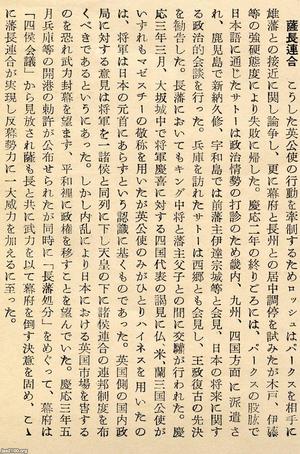 薩長連合
こうした英公使の行動を牽制するためロッシュはパークスを相手に
雄藩との接近に関し論争し、更に幕府と長州との居中調停を試みたが木戸、伊藤
等の強硬態度により失敗に帰した。慶応二年の終りごろには、パークスの股肱で
日本語に通じたサトーは政治情勢の打診のため畿内、九州、四国方面に派遣さ
れ、鹿児島で新納久脩、宇和島では前藩主伊達宗城等と会見、日本の将来に関す
る政治的会談を行った。兵庫を訪れたサトーは西郷とも会見し、王政復古の先決
を勧告した。長州においてもキング中将と藩主父子との間に交驩が行われた。慶
応三年三月、大坂城中で将軍慶喜に対する四国代表の謁見に仏、米、蘭三国公使が
いずれもマゼスチーの敬称を用いたが英公使のみがひとりハイネスを用いたの
は、将軍は日本の元首にあらずという認識に基くものであった。英国側の国内政
局に対する意見は将軍を一諸侯と同列に下し天皇の下に諸侯連合の連邦制度を布
くべきであるというにあった。しかし内乱により日本における英国市場を害する
のを恐れ武力討幕を望まず、平和裡に政権を移すことを望んでいた。慶応三年五
月兵庫等の開港の勅許が公布せられたが同時に「長藩処分」をめぐって、幕府は
「四侯会議」から見放され薩も長と共に武力を以て幕府を倒す決意を固め、こゝ
に薩長連合が実現し反幕勢力に一大威力を加えるに至った。
jaa2100.org